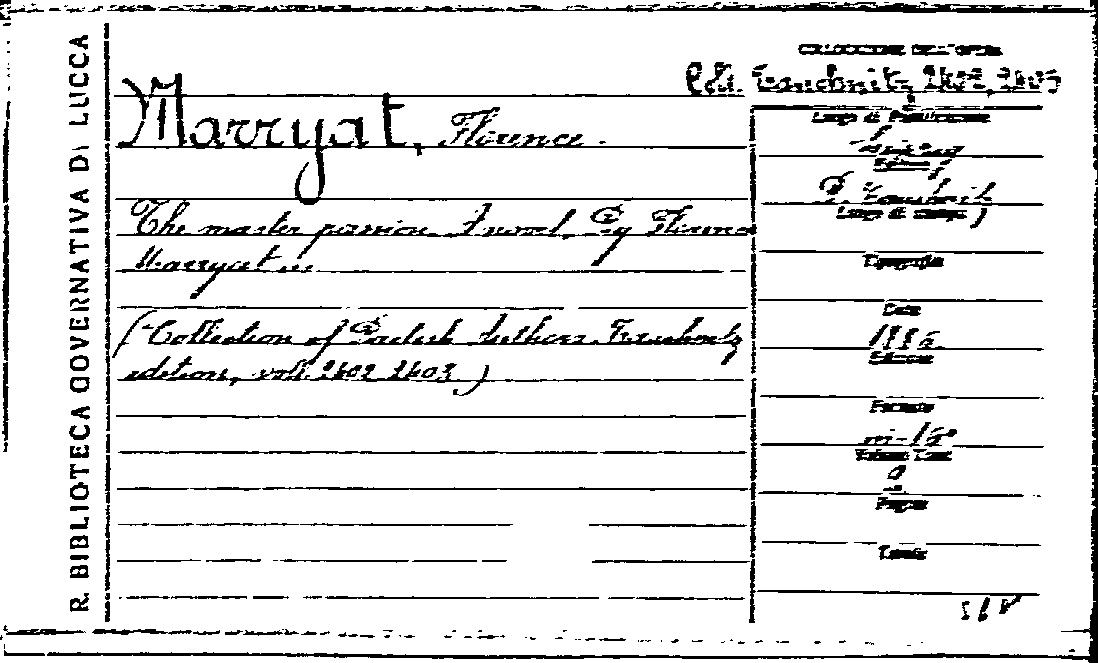 R. BIBLIOTECA GOVERNATIVA DI LUCCA
COLLOCAZIONE DELL'OPERA
Edi. Tauchnitz 2402, 2403
Marryat, Florence.
The master passion. A novel. By Florence
Marryat ...
(Collection of British Authors. Tauchnitz
edition, voll. 2402 2403.)
Luogo di Pubblicazione
Leipzig
Editore
B. Tauchnitz
Luogo di stampa
Tipografia
Data
1886
Edizione
Formato
in-16°
Volumi
2
Pagine
Tavole